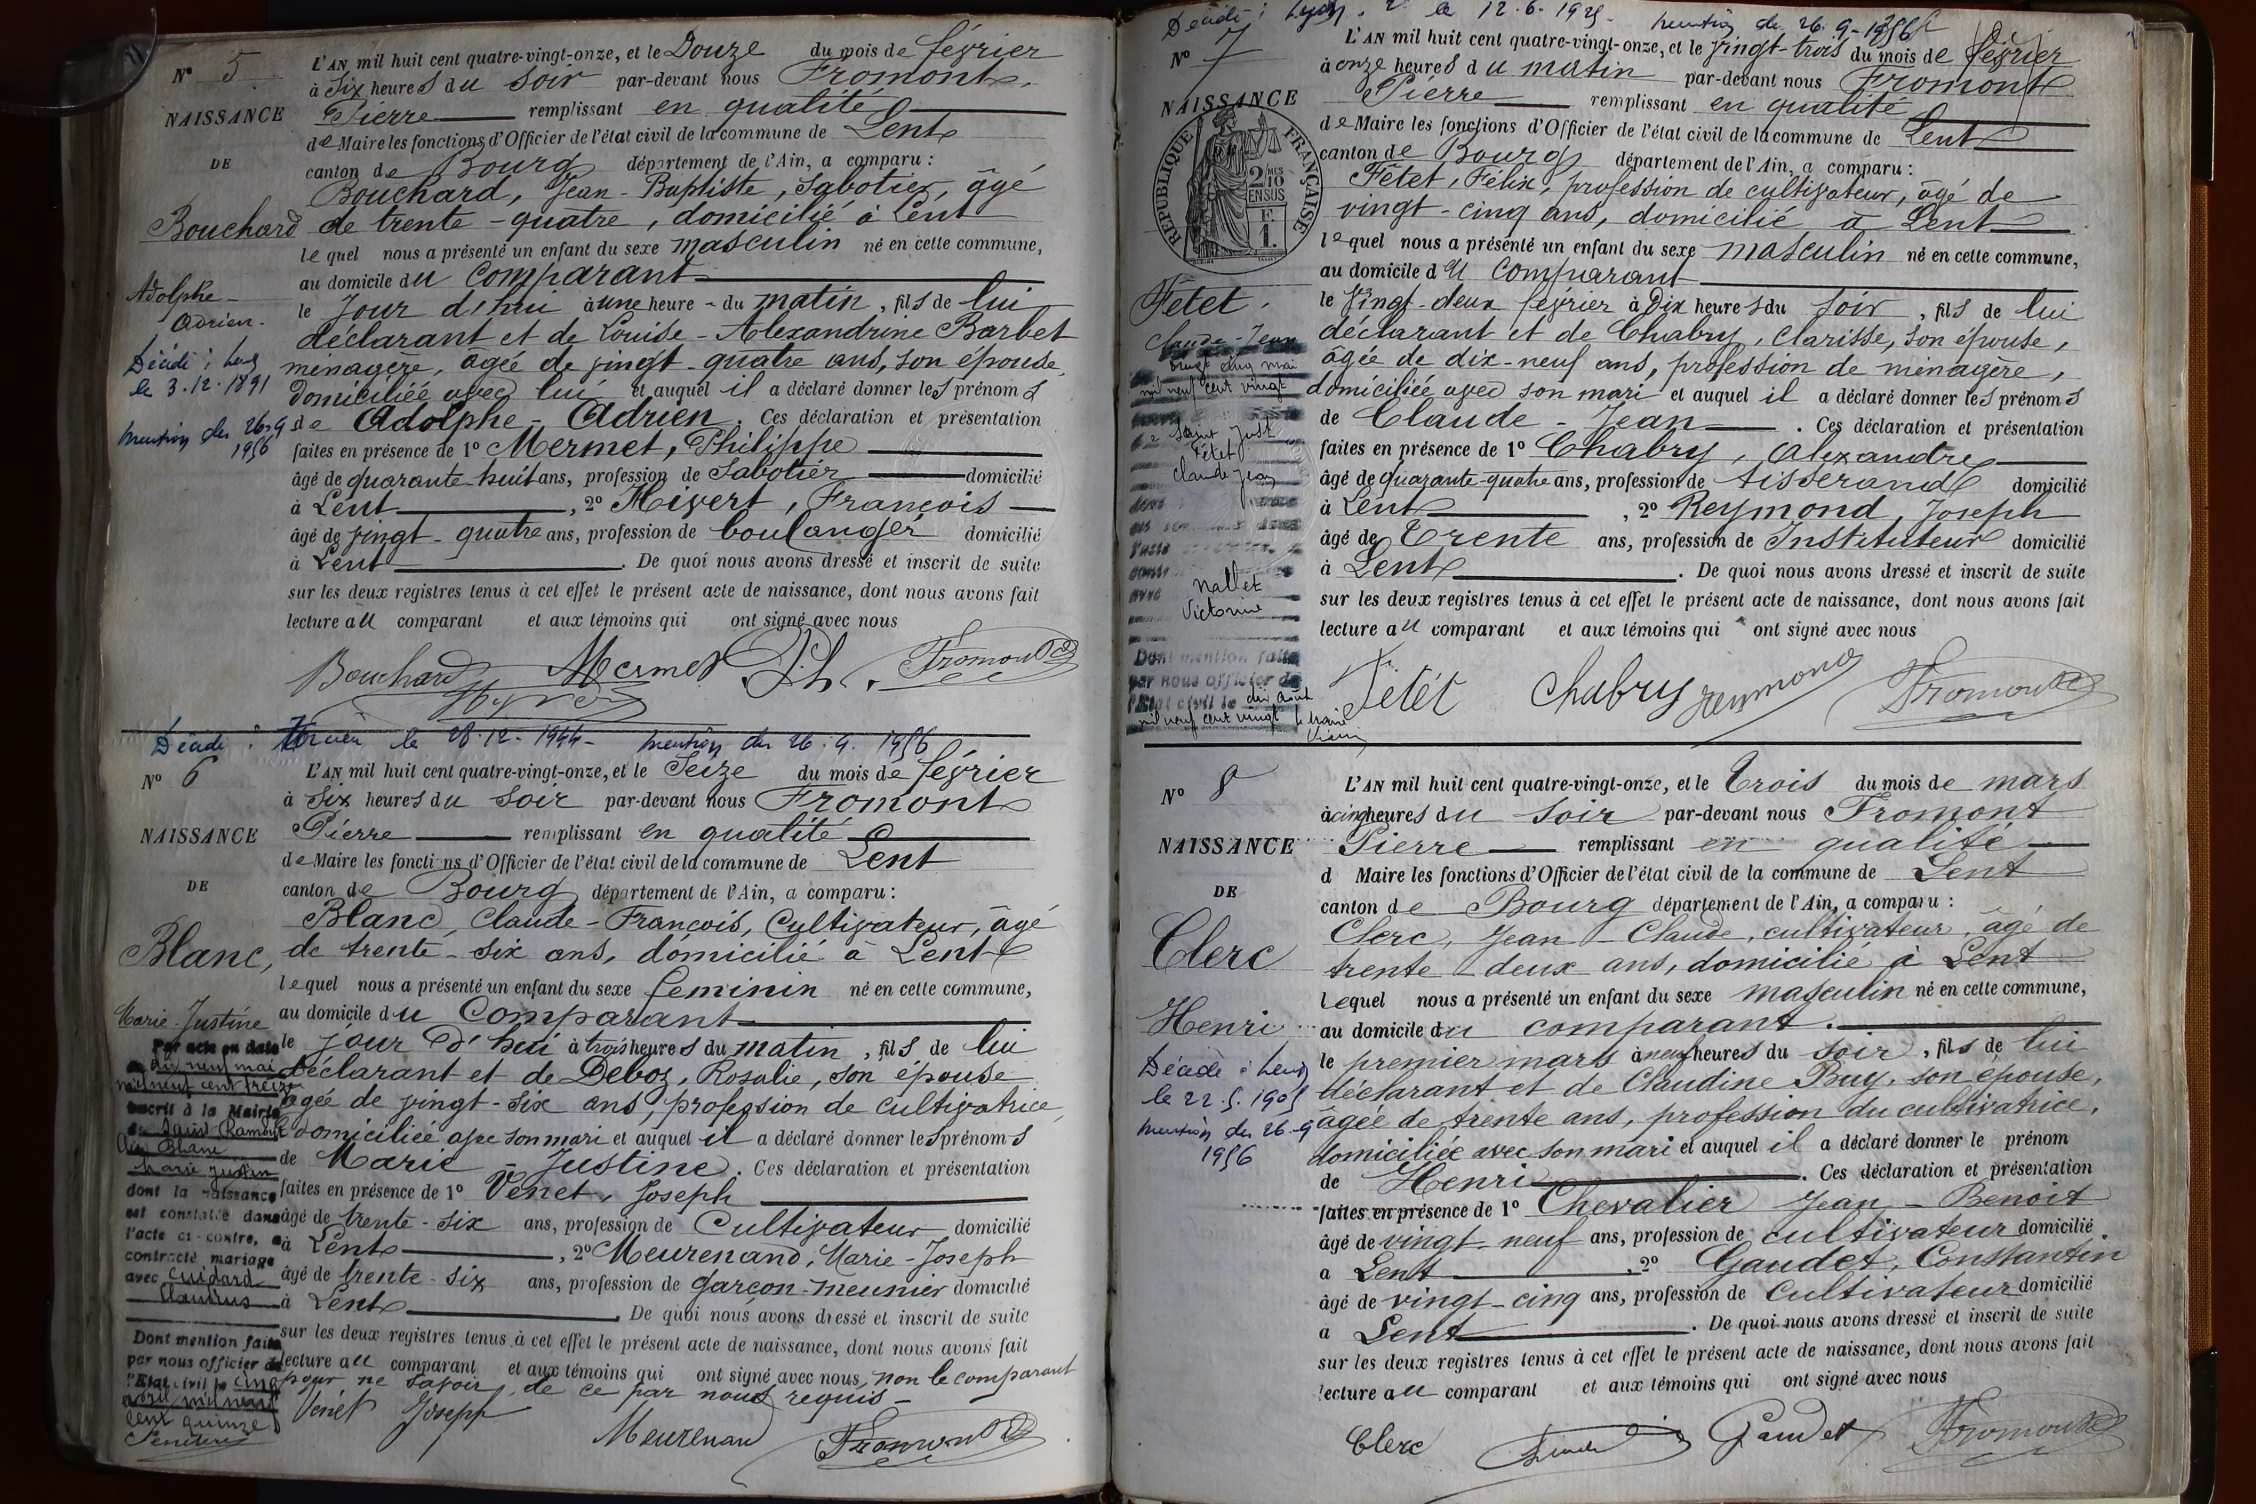 N° 5
L'AN mil huit cent quatre-vingt-onze, et le Douze du mois de février
à Six heures du soir par-devant nous Fromont
NAISSANCE
Pierre remplissant en qualité
de Maire les fonctions d'Officier de l'état civil de la commune de Lent
DE
canton de Bourg département de l'Ain, a comparu :
Bouchard, Jean-Baptiste, Sabotier, âgé
Bouchard
de trente-quatre, domicilié à Lent
lequel nous a présenté un enfant du sexe masculin né en cette commune,
au domicile du comparant
Adolphe-
Adrien.
le Jour d'hui à une heure du matin, fils de lui
déclarant et de Louise-Alexandrine Barbet
Décédé à Lent
le 3.12.1891
ménagère, agée de vingt-quatre ans, son épouse,
domiciliée avec lui et auquel il a déclaré donner les prénoms
mention du 26.9
1956
de Adolphe-Adrien. Ces déclaration et présentation
faites en présence de 1° Mermet, Philippe
âgé de quarante-huit ans, profession de Sabotier domicilié
à Lent, 2° Hivert, François
âgé de vingt-quatre ans, profession de boulanger domicilié
à Lent. De quoi nous avons dressé et inscrit de suite
sur les deux registres tenus à cet effet le présent acte de naissance, dont nous avons fait
lecture au comparant et aux témoins qui ont signé avec nous
Bouchard Mermet Ph. Fromont
Décédé à le 28.12.1944 - mention du 26.9.1956
N° 6
L'AN mil huit cent quatre-vingt-onze, et le Seize du mois de février
à Six heures du soir par-devant nous Fromont
NAISSANCE
Pierre remplissant en qualité
de Maire les fonctions d'Officier de l'état civil de la commune de Lent
DE
canton de Bourg département de l'Ain, a comparu :
Blanc, Claude-François, Cultivateur, âgé
Blanc,
de trente-six ans, domicilié à Lent
lequel nous a présenté un enfant du sexe féminin né en cette commune,
au domicile du Comparant
Marie-Justine
le jour d'hui à trois heures du matin, fils de lui
déclarant et de Deboz, Rosalie, son épouse
âgée de vingt-six ans, profession de cultivatrice,
domiciliée avec son mari et auquel il a déclaré donner les prénoms
de Marie-Justine. Ces déclaration et présentation
faites en présence de 1° Venet, Joseph
âgé de trente-six ans, profession de Cultivateur domicilié
à Lent, 2° Meurenand, Marie-Joseph
âgé de trente-six ans, profession de garçon-meunier domicilié
à Lent. De quoi nous avons dressé et inscrit de suite
sur les deux registres tenus à cet effet le présent acte de naissance, dont nous avons fait
lecture au comparant et aux témoins qui ont signé avec nous, non le comparant
pour ne savoir, de ce par nous requis
Par acte en date
du neuf mai
mil neuf cent treize
inscrit à la Mairie
Blanc
Marie Justine
dont la naissance
est constatée dans
l'acte ci-contre, a
contracté mariage
avec Cuidard
Claudius
Dont mention faite
par nous officier de
l'Etat civil le cinq
avril mil neuf
cent quinze
Vénet Joseph Meurenand Fromont
Décédé à Lyon, 2° le 12.6.1925 - mention du 26.9-1956
N° 7
L'AN mil huit cent quatre-vingt-onze, et le vingt-trois du mois de février
à onze heures du matin par-devant nous Fromont
NAISSANCE
Pierre remplissant en qualité
de Maire les fonctions d'Officier de l'état civil de la commune de Lent
RÉPUBLIQUE FRANÇAISE
2/10 EN SUS
F. 1.
canton de Bourg département de l'Ain, a comparu :
Fétet, Félix, profession de cultivateur, âgé de
vingt-cinq ans, domicilié à Lent
lequel nous a présenté un enfant du sexe masculin né en cette commune,
au domicile du comparant
Fétet.
Claude-Jean
le Vingt-deux février à Dix heures du soir, fils de lui
déclarant et de Chabry, Clarisse, son épouse,
âgée de dix-neuf ans, profession de ménagère,
domiciliée avec son mari et auquel il a déclaré donner les prénoms
de Claude-Jean. Ces déclaration et présentation
faites en présence de 1° Chabry, Alexandre
âgé de quarante-quatre ans, profession de tisserand domicilié
à Lent, 2° Reymond, Joseph
âgé de Trente ans, profession de Instituteur domicilié
à Lent. De quoi nous avons dressé et inscrit de suite
sur les deux registres tenus à cet effet le présent acte de naissance, dont nous avons fait
lecture au comparant et aux témoins qui ont signé avec nous
vingt cinq mai
mil neuf cent vingt
Saint Just
Fétet
Claude Jean
Nallet
Victorine
Dont mention faite
par nous officier de
l'Etat civil le dix août
mil neuf cent vingt le maire
Fétét Chabry Reymond Fromont
N° 8
L'AN mil huit cent quatre-vingt-onze, et le Trois du mois de mars
à cinq heures du soir par-devant nous Fromont
NAISSANCE
Pierre remplissant en qualité
d Maire les fonctions d'Officier de l'état civil de la commune de Lent
DE
canton de Bourg département de l'Ain, a comparu :
Clerc, Jean-Claude, cultivateur, âgé de
Clerc
trente-deux ans, domicilié à Lent
Lequel nous a présenté un enfant du sexe masculin né en cette commune,
Henri
au domicile du comparant.
le premier mars à neuf heures du soir, fils de lui
Décédé à Lent
le 22.5.1905
mention du 26-9
1956
déclarant et de Claudine Buy, son épouse,
âgée de trente ans, profession du cultivatrice,
domiciliée avec son mari et auquel il a déclaré donner le prénom
de Henri. Ces déclaration et présentation
faites en présence de 1° Chevalier Jean-Benoit
âgé de vingt-neuf ans, profession de cultivateur domicilié
a Lent, 2° Gaudet, Constantin
âgé de vingt-cinq ans, profession de Cultivateur domicilié
a Lent. De quoi nous avons dressé et inscrit de suite
sur les deux registres tenus à cet effet le présent acte de naissance, dont nous avons fait
lecture au comparant et aux témoins qui ont signé avec nous
Clerc Gaudet Fromont